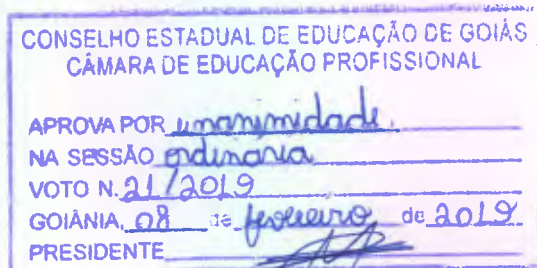 CONSELHO ESTADUAL DE EDUCAÇÃO DE GOIÁS
CÂMARA DE EDUCAÇÃO PROFISSIONAL
APROVA POR unanimidade.
NA SESSÃO ordinaria
VOTO N. 21/2019
GOIÂNIA, 08 de fevereiro de 2019
PRESIDENTE